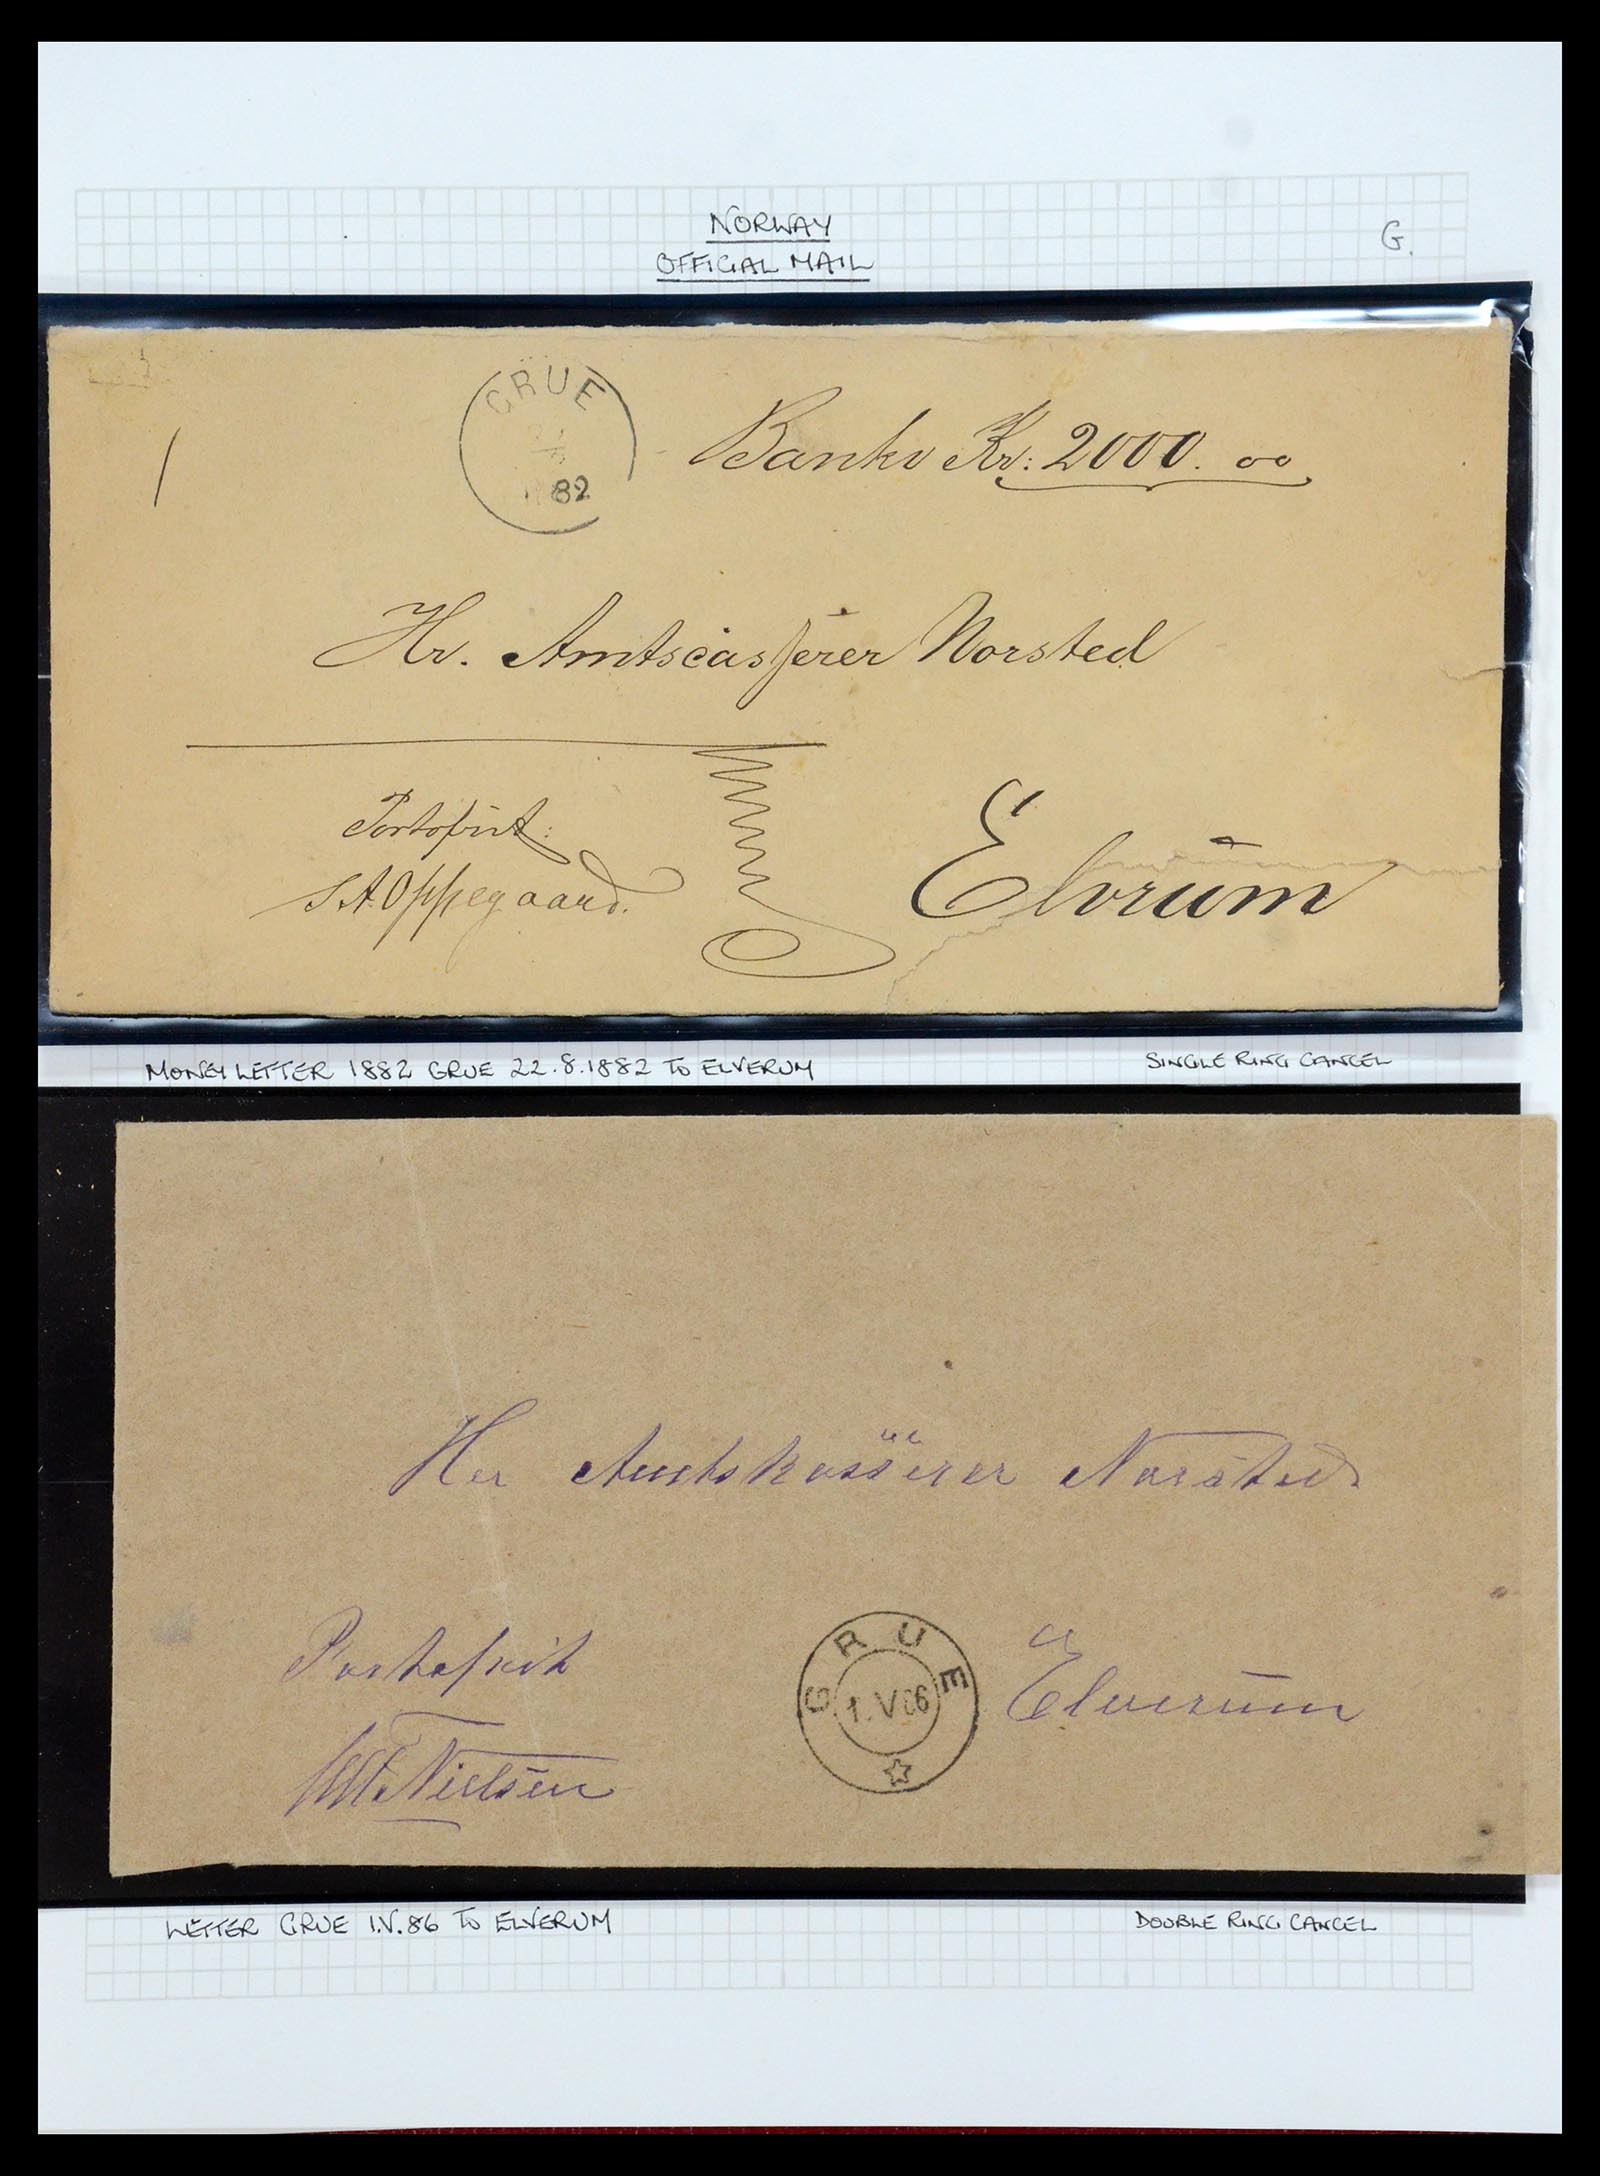 NORWAY
OFFICIAL MAIL
G.
GRUE
82
Banko Kr: 2000. 00
Hr. Amtscasserer Norsted
Portofrit:
S A Oppegaard.
Elvrum
MONEY LETTER 1882 GRUE 22.8.1882 TO ELVERUM
SINGLE RING CANCEL
Her Amtskasserer Norsted
Portofrit
Nielsen
GRUE
1.V86
Elverum
LETTER GRUE 1.V.86 TO ELVERUM
DOUBLE RING CANCEL